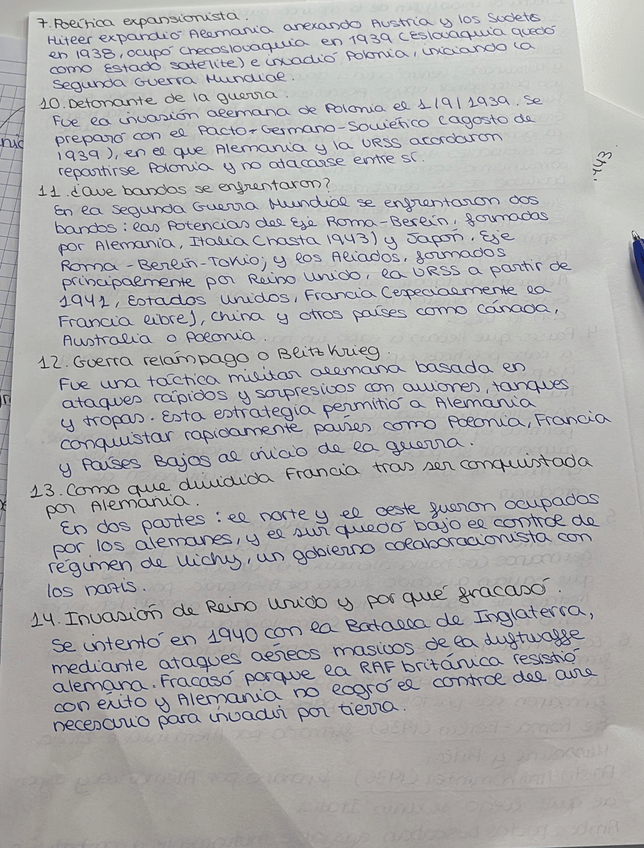 7. Política expansionista.
Hitler expandió Alemania anexando Austria y los Sudetes
en 1938, ocupó Checoslovaquia en 1939 (Eslovaquia quedó
como Estado satélite) e invadió Polonia, iniciando la
Segunda Guerra Mundial.
10. Detonante de la guerra.
Fue la invasión alemana de Polonia el 1/9/1939. Se
preparó con el Pacto Germano-Soviético (agosto de
1939), en el que Alemania y la URSS acordaron
repartirse Polonia y no atacarse entre sí.
11. ¿Qué bandos se enfrentaron?
En la Segunda Guerra Mundial se enfrentaron dos
bandos: las Potencias del Eje Roma-Berlín, formadas
por Alemania, Italia (hasta 1943) y Japón, Eje
Roma-Berlín-Tokio; y los Aliados, formados
principalmente por Reino Unido, la URSS a partir de
1941, Estados Unidos, Francia (especialmente la
Francia libre), China y otros países como Cánada,
Australia o Polonia.
12. Guerra relámpago o Blitzkrieg.
Fue una táctica militar alemana basada en
ataques rápidos y sorpresivos con aviones, tanques
y tropas. Esta estrategia permitió a Alemania
conquistar rapidamente países como Polonia, Francia
y Países Bajos al inicio de la guerra.
13. Como que dividida Francia tras ser conquistada
por Alemania.
En dos partes: el norte y el oeste fueron ocupados
por los alemanes, y el sur quedó bajo el control de
régimen de Vichy, un gobierno colaboracionista con
los nazis.
14. Invasión de Reino Unido y por qué fracasó
Se intentó en 1940 con la Batalla de Inglaterra,
mediante ataques aéreos masicos de la Luftwaffe
alemana. Fracasó porque la RAF británica resistió
con éxito y Alemania no logró el control del aire
necesario para invadir por tierra.